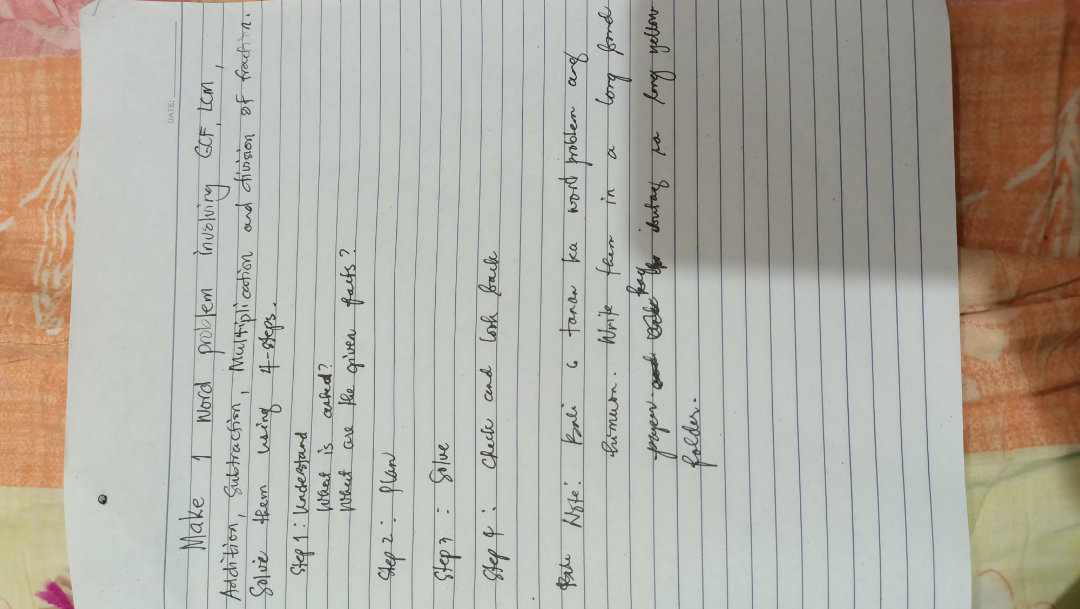 DATE:
Make 1 Word problem involving GCF, LCM,
Addition, Subtraction, Multiplication and division of fraction.
Solve them using 4-steps.
Step 1: Understand
What is asked?
What are the given facts?
Step 2: Plan
Step 3: Solve
Step 4: Check and look back
Note: Bali 6 tanan ka word problem ang
himuon. Write them in a long bond
paper kag ibutang sa long yellow
folder.